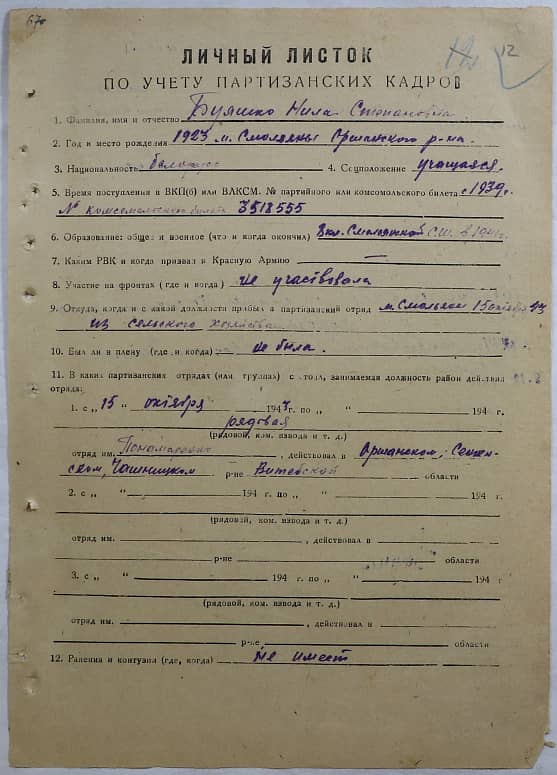 67
12
ЛИЧНЫЙ ЛИСТОК
ПО УЧЕТУ ПАРТИЗАНСКИХ КАДРОВ
1. Фамилия, имя и отчество Буяшко Нила Степановна
2. Год и место рождения 1923 м. Смоляны Оршанского р-на
3. Национальность белорусс 4. Соцположение учащаяся.
5. Время поступления в ВКП(б) или ВЛКСМ. № партийного или комсомольского билета с 1939 г.
№ комсомольского билета 3518555
6. Образование: общее и военное (что и когда окончил) 8 кл. Смолянской с.ш. в 1941 г.
7. Каким РВК и когда призван в Красную Армию —
8. Участие на фронтах (где и когда) не участвовала
9. Откуда, когда и с какой должности прибыл в партизанский отряд м. Смоляны 15 октября 43
из сельского хозяйства
10. Был ли в плену (где и когда) не была.
11. В каких партизанских отрядах (или группах) состоял, занимаемая должность район действия
отряда:
1. с „ 15 " октября 1943 г. по „ " 194 г.
рядовая
(рядовой, ком. взвода и т. д.)
отряд им. , действовал в Оршанском, Сеннен-
ском, Чашницком р-не Витебской области
2. с „ " 194 г. по „ " 194 г.
(рядовой, ком. взвода и т. д.)
отряд им. , действовал в
р-не области
3. с „ " 194 г. по „ " 194 г
(рядовой, ком. взвода и т. д.)
отряд им. , действовал в
р-не области
12. Ранения и контузия (где, когда) не имеет